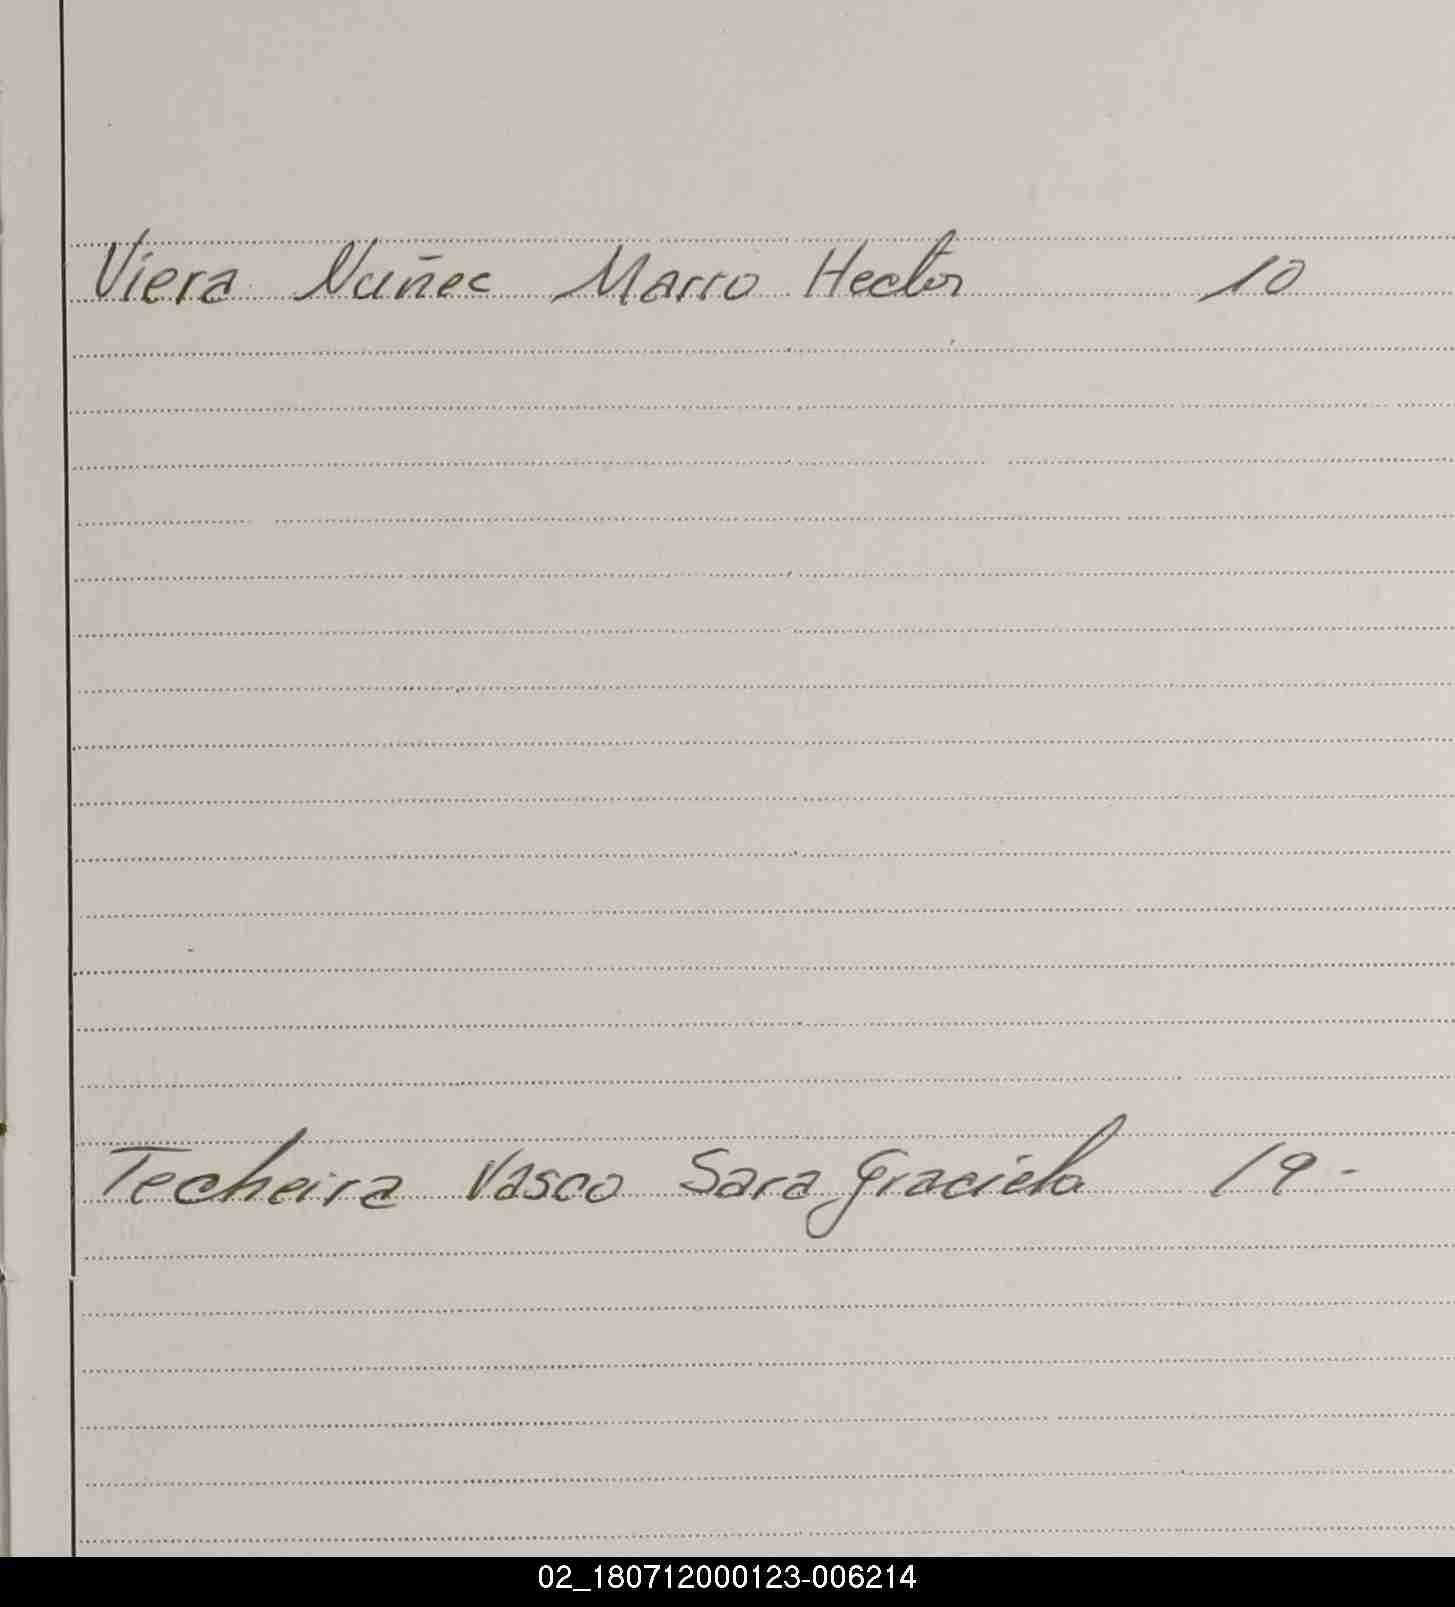 Viera Nuñec Marro Hector 10
Techeira Vasco Sara Graciela 19-
02_180712000123-006214